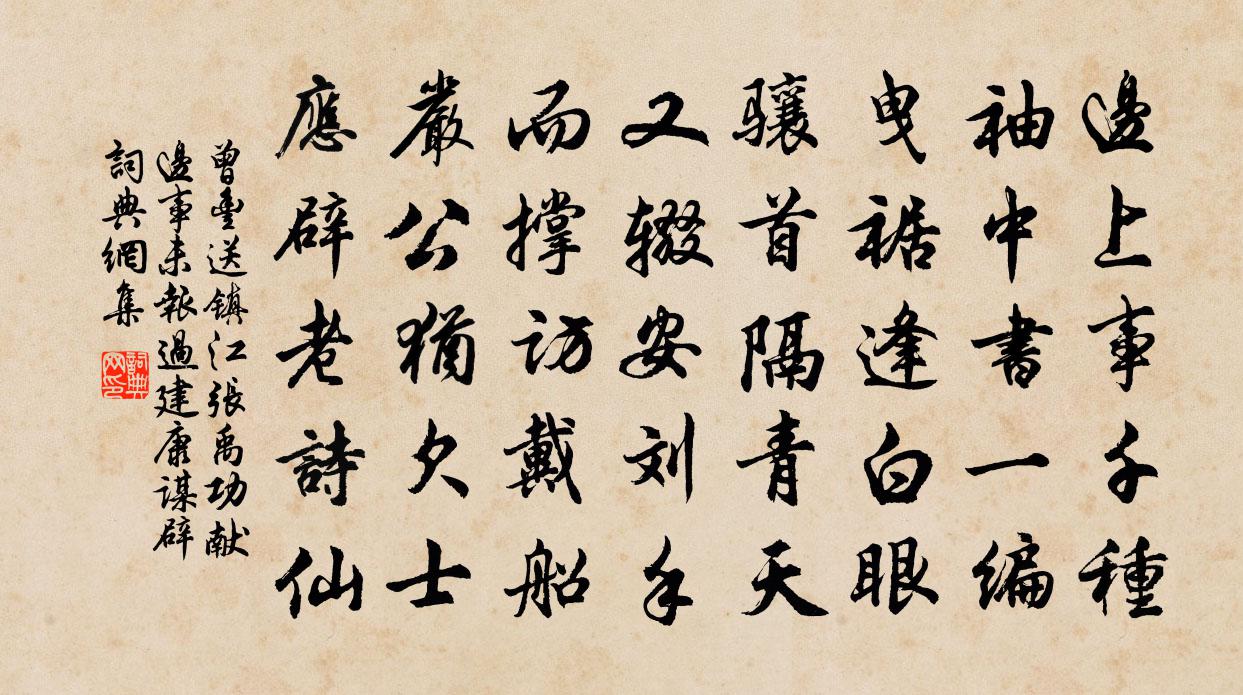 邊上事千種
袖中書一编
曳裾逢白眼
骧首隔青天
又辍安刘手
而撑访戴船
嚴公猶欠士
應辟老詩仙
曾豐送镇江張禹功献
邊事未報過建康謀辟
詞典網集
詞典网印